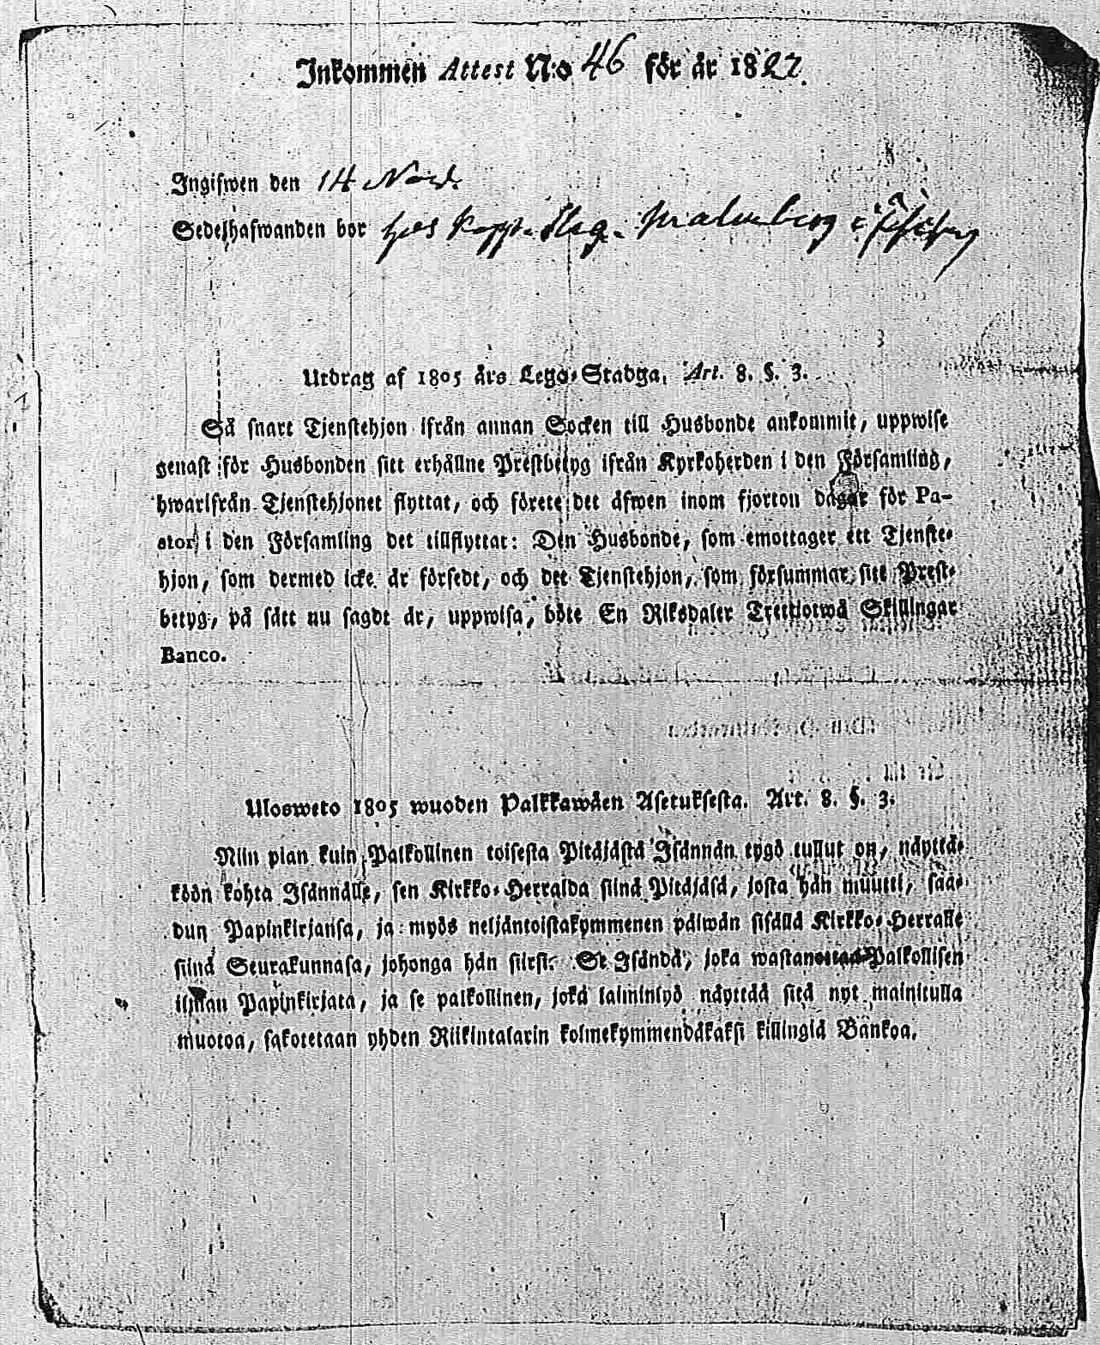 Inkommen Attest N:o 46 för år 1827.
Ingifwen den 14 Novd.
Sedelhafwanden bor hos Kopp. Slag. Malmberg i
Utdrag af 1805 års Lego-Stadga, Art. 8. §. 3.
Så snart Tjenstehjon ifrån annan Socken till Husbonde ankommit, uppwise
genast för Husbonden sitt erhållne Prestbetyg ifrån Kyrkoherden i den Församling,
hwarifrån Tjenstehjonet flyttat, och förete det äfwen inom fjorton dagar för Pa-
stor i den Församling det tillflyttat: Den Husbonde, som emottager ett Tjenste-
hjon, som dermed icke är försedt, och det Tjenstehjon, som försummar sitt Prest-
betyg, på sätt nu sagdt är, uppwisa, böte En Riksdaler Trettiotwå Skillingar
Banco.
Ulosweto 1805 wuoden Palkkawäen Asetuksesta. Art. 8. §. 3.
Niin pian kuin Palkollinen toisesta Pitäjästä Isännän tygö tullut on, näyttä-
köön kohta Isännälle, sen Kirkko-Herralda siinä Pitäjäsä, josta hän muutti, saa-
dun Papinkirjansa, ja myös neljäntoistakymmenen päiwän sisällä Kirkko-Herralle
siinä Seurakunnasa, johonga hän siirsi. Se Isändä, joka wastanottaa Palkollisen
ilman Papinkirjata, ja se palkollinen, joka laiminlyö näyttää sitä nyt mainitulla
muotoa, sakotetaan yhden Riikintalarin kolmekymmendäkaksi killingiä Bankoa.